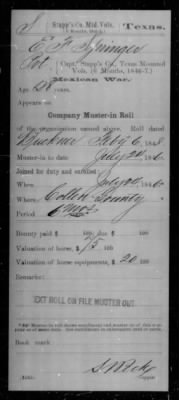 S | Stapp's Co. Mtd. Vols. | Texas.
(6 Months, 1846-7.)
E. F. Springer
Pvt, Capt. Stapp's Co., Texas Mounted
Vols. (6 Months, 1846-7.)
Mexican War.
Age 28 years.
Appears on
Company Muster-in Roll
of the organization named above. Roll dated
Buckner Feby 6, 1848
Muster-in to date July 24, 1846
Joined for duty and enrolled:
When July 24, 1846
Where Collin County
Period 6 mos.
Bounty paid $ 100; due $ 100
Valuation of horse, $ 75 100
Valuation of horse equipments, $ 20 100
Remarks:
EXT ROLL ON FILE MUSTER OUT.
Book mark:
Copyist.